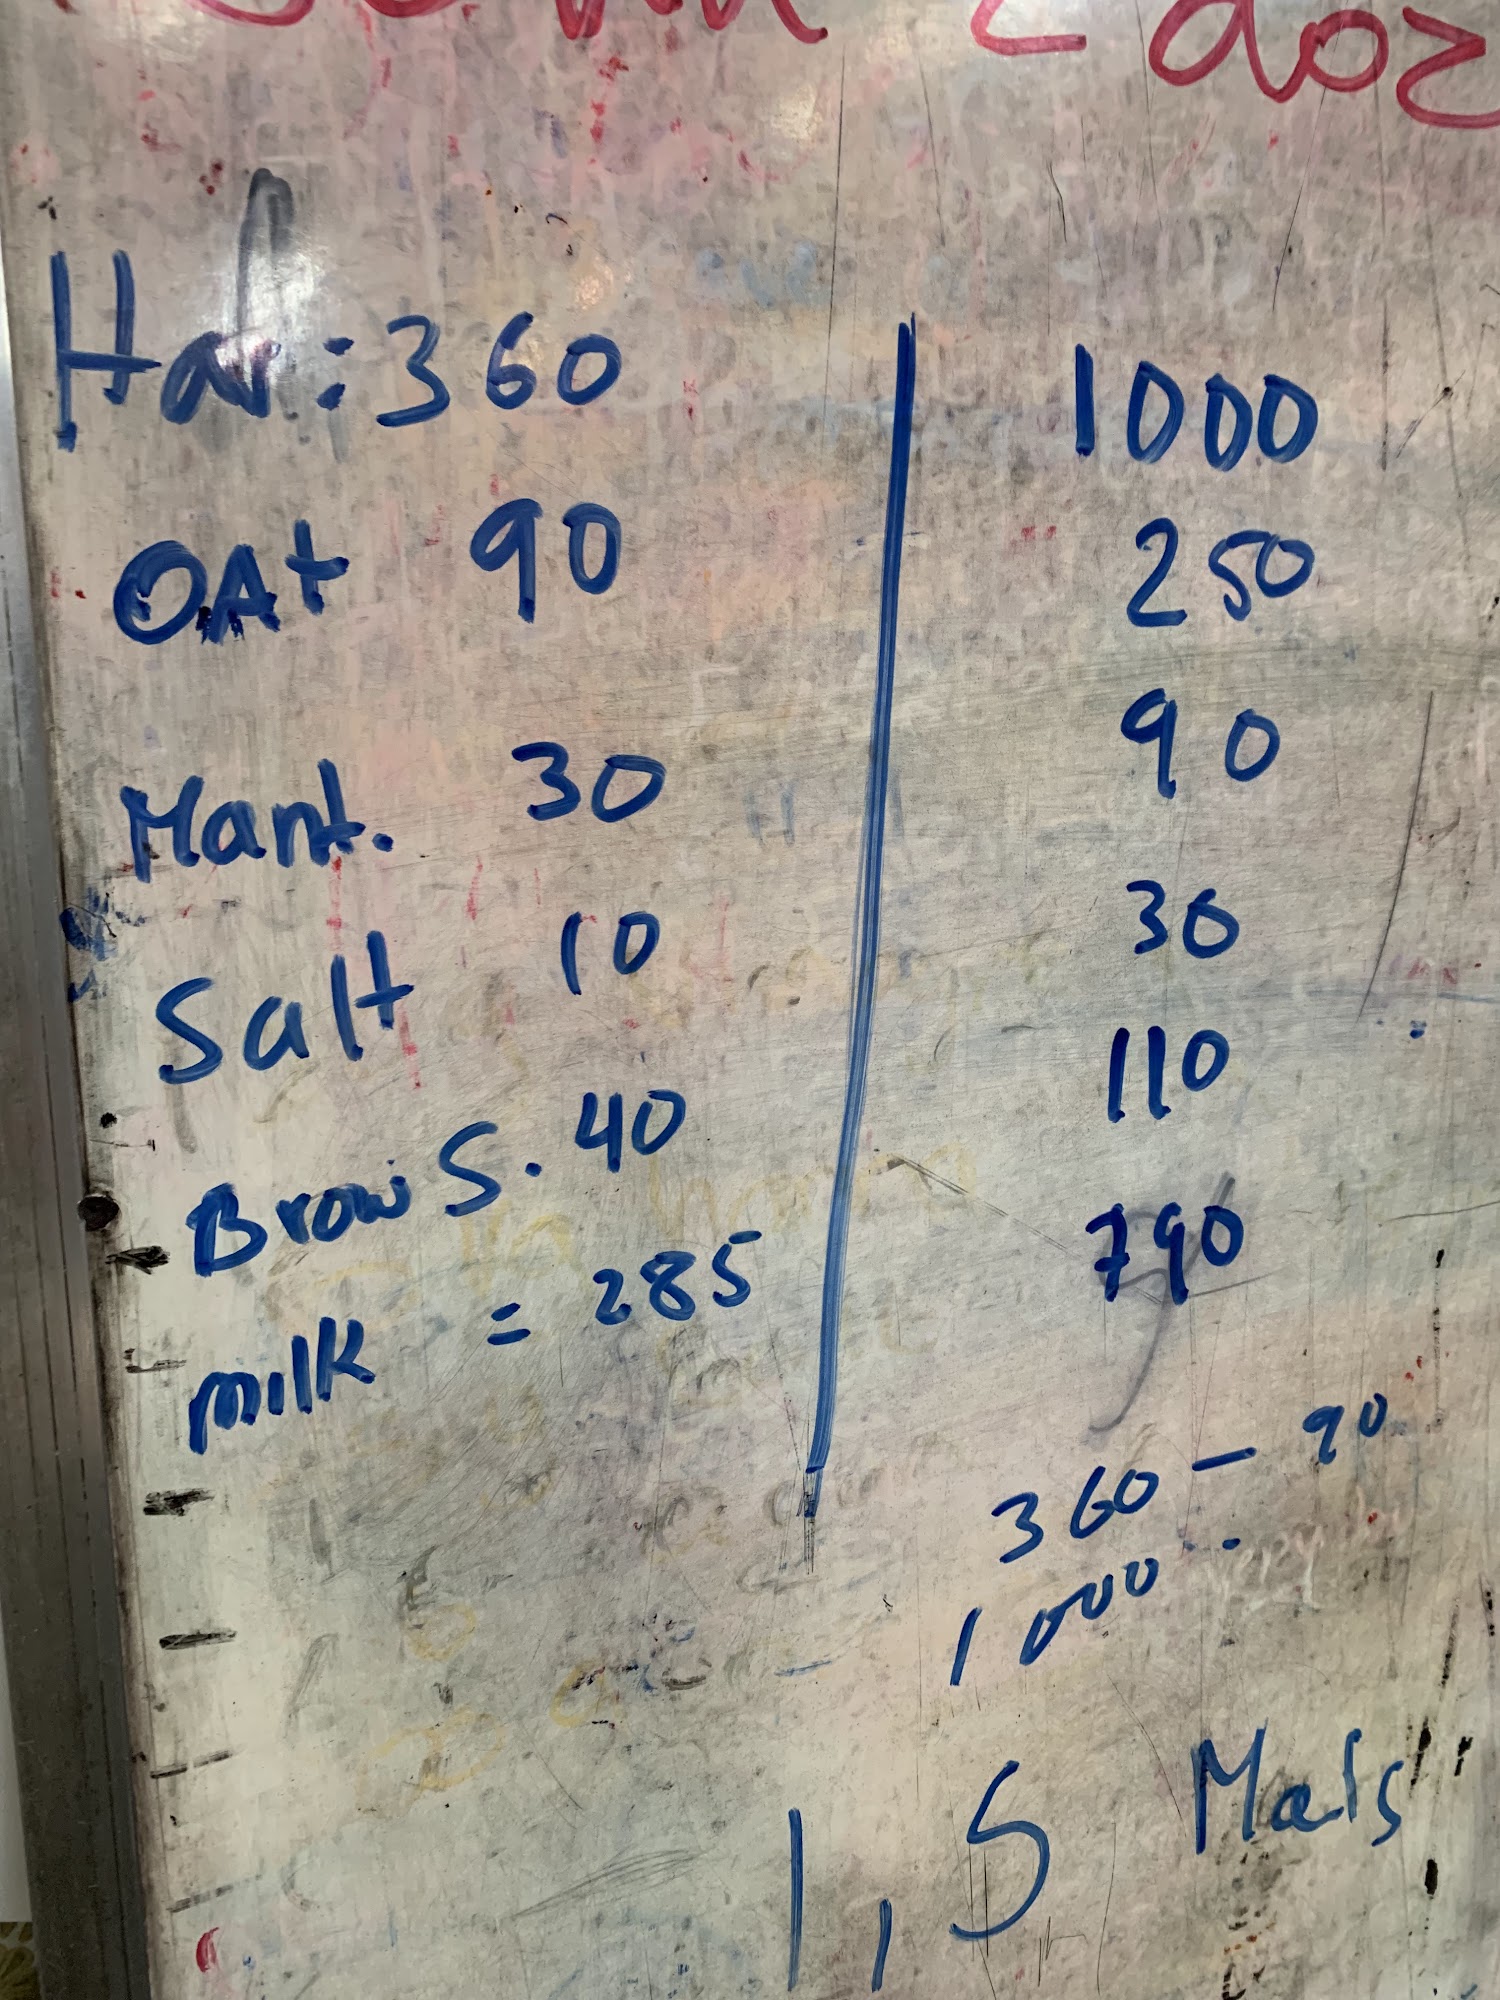 2 doz
Har: 360 1000
OAt 90 250
Mant. 30 90
Salt 10 30
Brow S. 40 110
milk = 285 790
360 — 90
1000
1,5 Mats